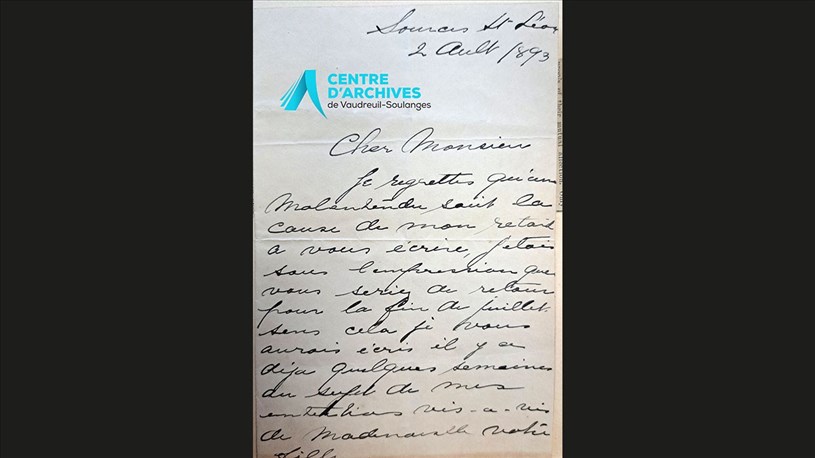 Sources St-Léon
2 Ault 1893
CENTRE
D'ARCHIVES
de Vaudreuil-Soulanges
Cher Monsieur
Je regrettes qu'un
Malentendu soit la
cause de mon retard
a vous écrire, j'etais
sous l'empression que
vous seriez de retour
pour la fin de juillet.
sens cela je vous
aurais écris il y a
deja quelques semaines
au sujet de mes
ententions vis-a-vis
de Mademoiselle votre
fille